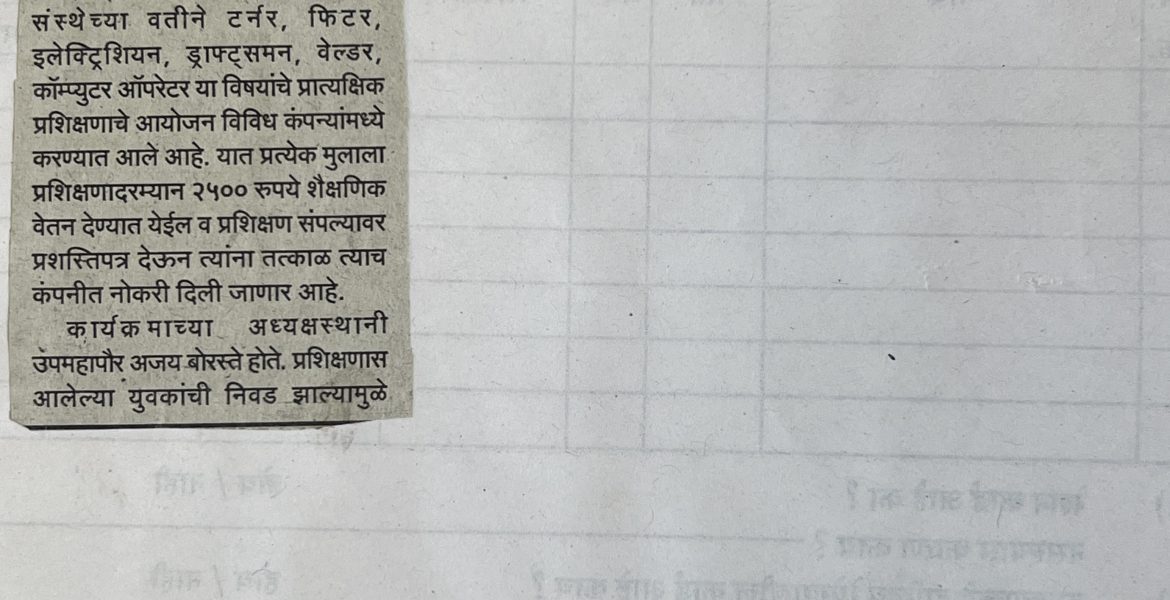 संस्थेच्या वतीने टर्नर, फिटर,
इलेक्ट्रिशियन, ड्राफ्ट्समन, वेल्डर,
कॉम्प्युटर ऑपरेटर या विषयांचे प्रात्यक्षिक
प्रशिक्षणाचे आयोजन विविध कंपन्यांमध्ये
करण्यात आले आहे. यात प्रत्येक मुलाला
प्रशिक्षणादरम्यान २५०० रुपये शैक्षणिक
वेतन देण्यात येईल व प्रशिक्षण संपल्यावर
प्रशस्तिपत्र देऊन त्यांना तत्काळ त्याच
कंपनीत नोकरी दिली जाणार आहे.
कार्यक्रमाच्या अध्यक्षस्थानी
उपमहापौर अजय बोरस्ते होते. प्रशिक्षणास
आलेल्या युवकांची निवड झाल्यामुळे
होय / नाही
होय / नाही